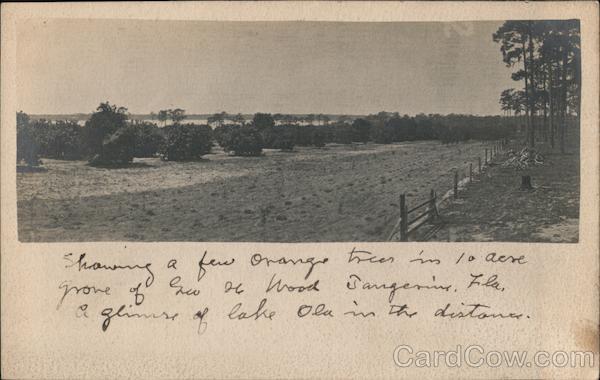 Showing a few Orange trees in 10 acre
grove of Geo H Wood Tangerine, Fla.
A glimse of lake Ola in the distance.
CardCow.com